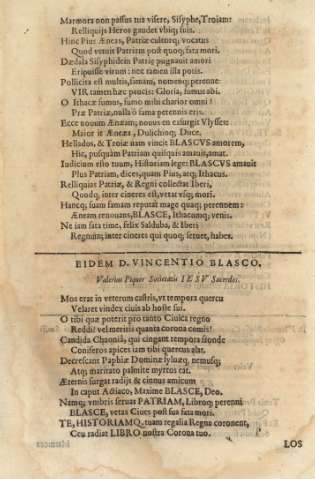 Marmora non passus tua visere, Sisyphe, Troiam:
Relliquijs Heros gaudet vbiq; suis.
Hinc Pius Æneas, Patriæ cultorq; vocatus
Quod venit Patriam post quoq; fata mori.
Dædala Sisyphidein Patriæ pugnauit amori
Eripuisse virum: nec tamen illa potis.
Pollicita est multis, famam, nomenq; perenne
VIR tamen hæc paucis: Gloria, fumus abi.
O Ithacæ fumus, fumo mihi charior omni!
Præ Patria, nulla ò fama perennis eris.
Ecce nouum Ænæam; nouus en casurgit Vlysses:
Maior it Æneas, Dulichioq; Duce.
Hellados, & Troiæ nam vincit BLASCVS amorem,
Hic, pusquàm Patriam quisquis amauit, amat.
Iudicium esto tuum, Historiam lege: BLASCVS amauit
Plus Patriam, dices, quam Pius, atq; Ithacus.
Relliquias Patriæ, & Regni collectas Iberi,
Quodq; inter cineres est, vetat vsq; mori.
Hancq; suam famam reputat mage quaq; perennem:
Æneam renouans, BLASCE, Ithacumq; venis.
Ne iam fata time, felix Salduba, & Iberi
Regnum; inter cineres qui quoq; seruet, habes.
EIDEM D. VINCENTIO BLASCO,
Valerius Piquer Societatis IESV Sacerdos.
Mos erat in veterum castris, vt tempora quercu
Velaret vindex ciuis ab hoste sui.
O tibi quæ poterit pro tanto Ciuica regno
Reddi! vel meritis quanta corona comis!
Candida Chaoniâ, qui cingant tempora fronde
Coniferos apices iam tibi quercus alat.
Decrescant Paphiæ Dominæ syluæq; nemusq;
Atq; maritato palmite myrtus eat.
Æternis surgat radijs & cinnus amicum
In caput Actiaco, Maxime BLASCE, Deo.
Namq; vmbris seruas PATRIAM, Libroq; perenni
BLASCE, vetas Ciues post sua fata mori.
TE, HISTORIAMQ. tuam regalia Regna coronent,
Ceu radiat LIBRO nostra Corona tuo.
LOS